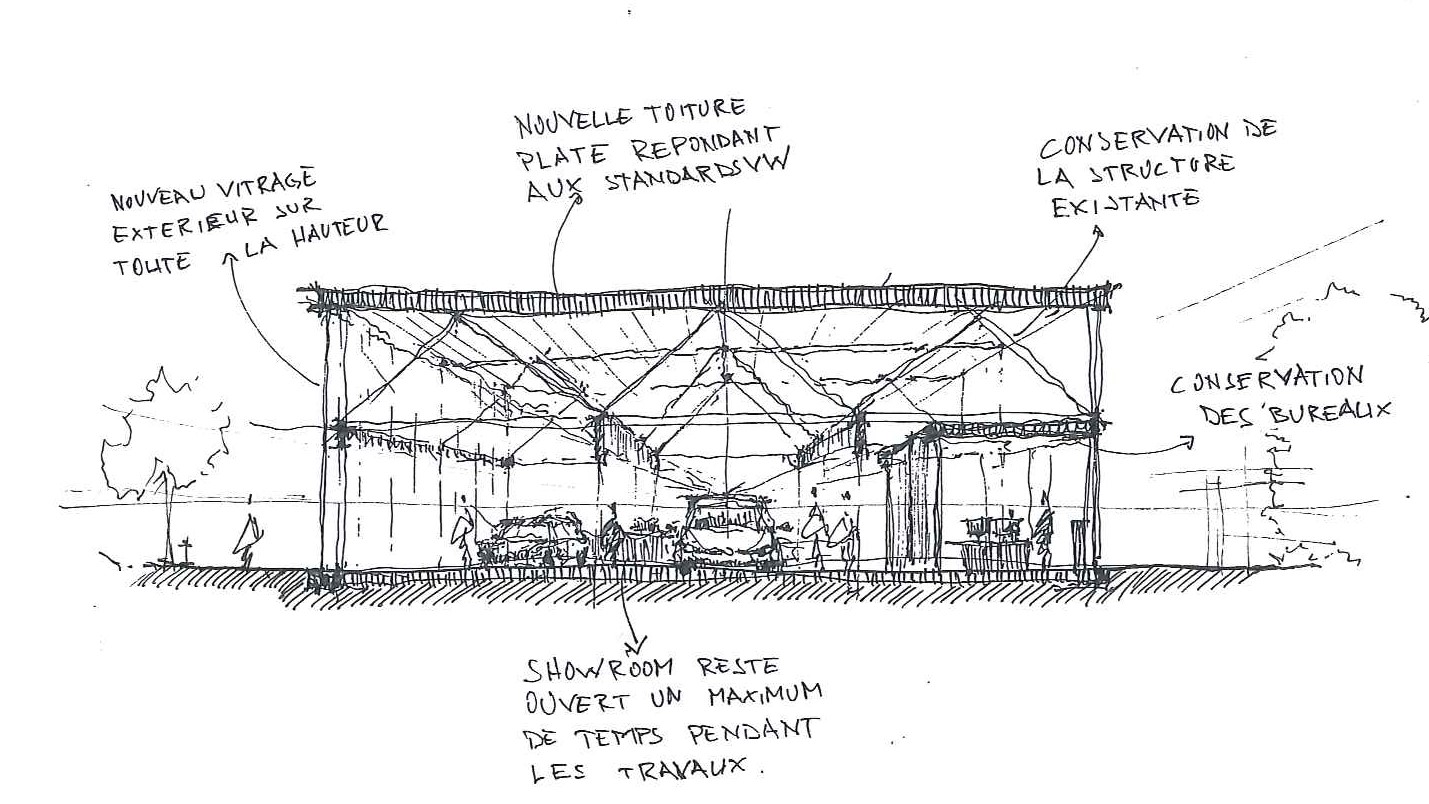 NOUVELLE TOITURE
PLATE REPONDANT
AUX STANDARDS VW
CONSERVATION DE
LA STRUCTURE
EXISTANTE
NOUVEAU VITRAGE
EXTERIEUR SUR
TOUTE LA HAUTEUR
CONSERVATION
DES BUREAUX
SHOWROOM RESTE
OUVERT UN MAXIMUM
DE TEMPS PENDANT
LES TRAVAUX.